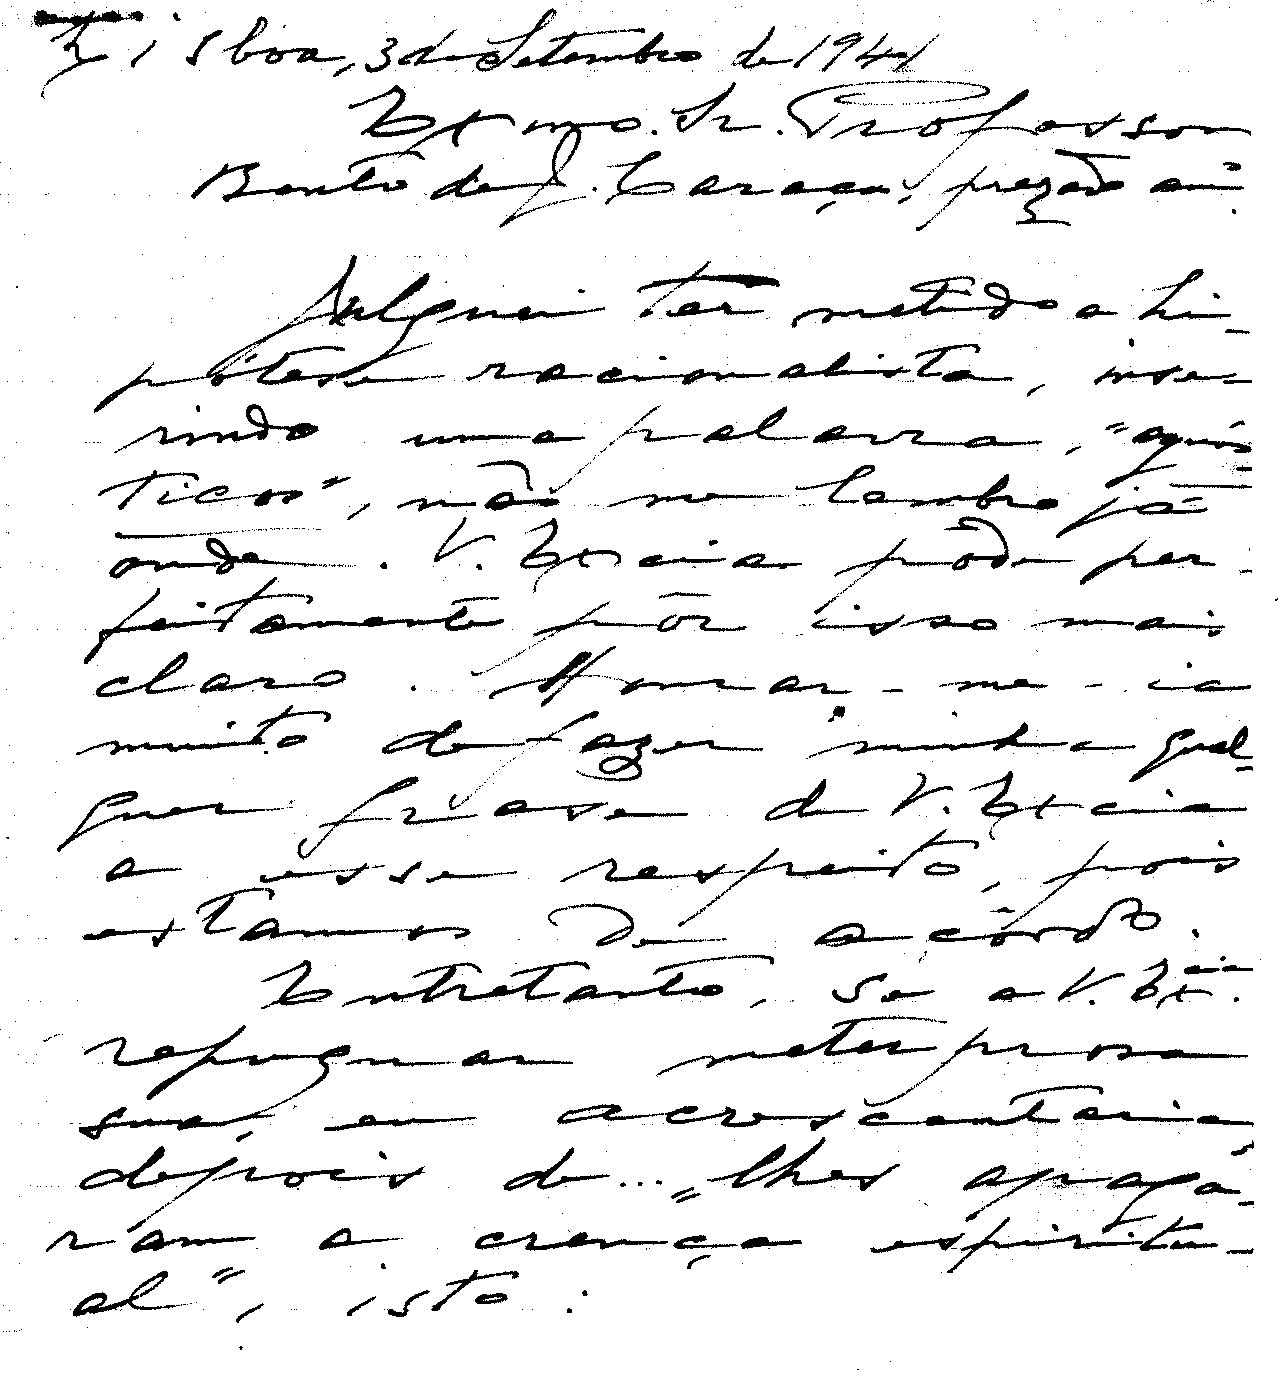 Lisboa, 3 de Setembro de 1944
Exmo. Sr. Professor
Bento de J. Caraça, prezado am.º
Julguei ter metido a hi-
pótese racionalista, inse-
rindo uma palavra, "agnós-
ticos", não me lembro já
onde. V. Excia pode per-
feitamente pôr isso mais
claro. Honrar-me-ia
muito de fazer minha qual-
quer frase de V. Excia
a esse respeito, pois
estamos de acôrdo.
Entretanto, se a V. Excia.
repugnar meter prosa
sua, eu acrescentaria,
depois de... "lhes apagá-
ram a crença espiritu-
al", isto: